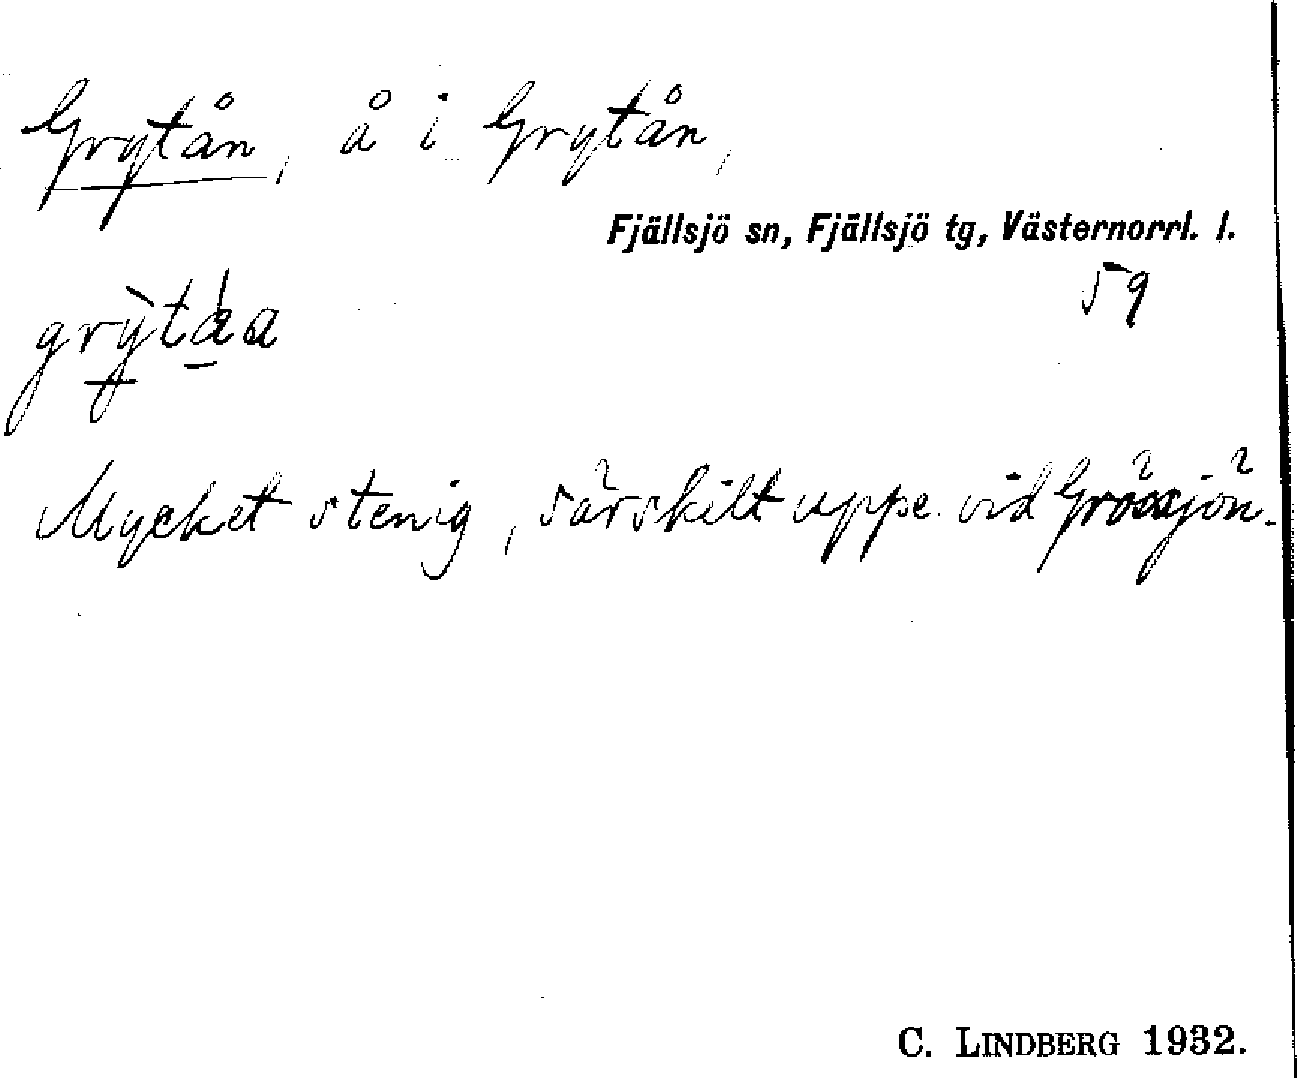 Grytån, å i Grytån,
Fjällsjö sn, Fjällsjö tg, Västernorrl. l.
59
Mycket stenig, särskilt uppe vid Grössjön.
C. LINDBERG 1932.